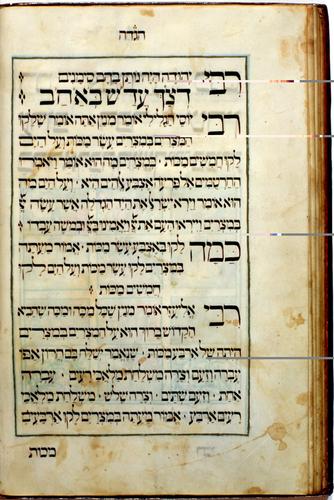 הגדה
רבי יהודה היה נותן בהם סימנים
דצך עדש באחב
רבי יוסי הגלילי אומר מנין אתה אומר שלקו
המצרים במצרים עשר מכות ועל הים
לקו חמשים מכות · במצרים מה הוא אומר ויאמרו
החרטמים אל פרעה אצבע אלהים היא · ועל הים מה
הוא אומר וירא ישראל את היד הגדולה אשר עשה
במצרים וייראו העם את ויאמינו ובמשה עבדו
כמה לקו באצבע עשר מכות · אמור מעתה
במצרים לקו עשר מכות ועל הים לקו
חמשים מכות
רבי אליעזר אומר מנין שכל מכה ומכה שהביא
הקדוש ברוך הוא על המצרים במצרים
היתה של ארבע מכות · שנאמר ישלח בם חרון אפו
עברה וזעם וצרה משלחת מלאכי רעים · עברה
אחת · וזעם שתים · וצרה שלש · משלחת מלאכי
רעים ארבע · אמור מעתה במצרים לקו ארבעים
מכות